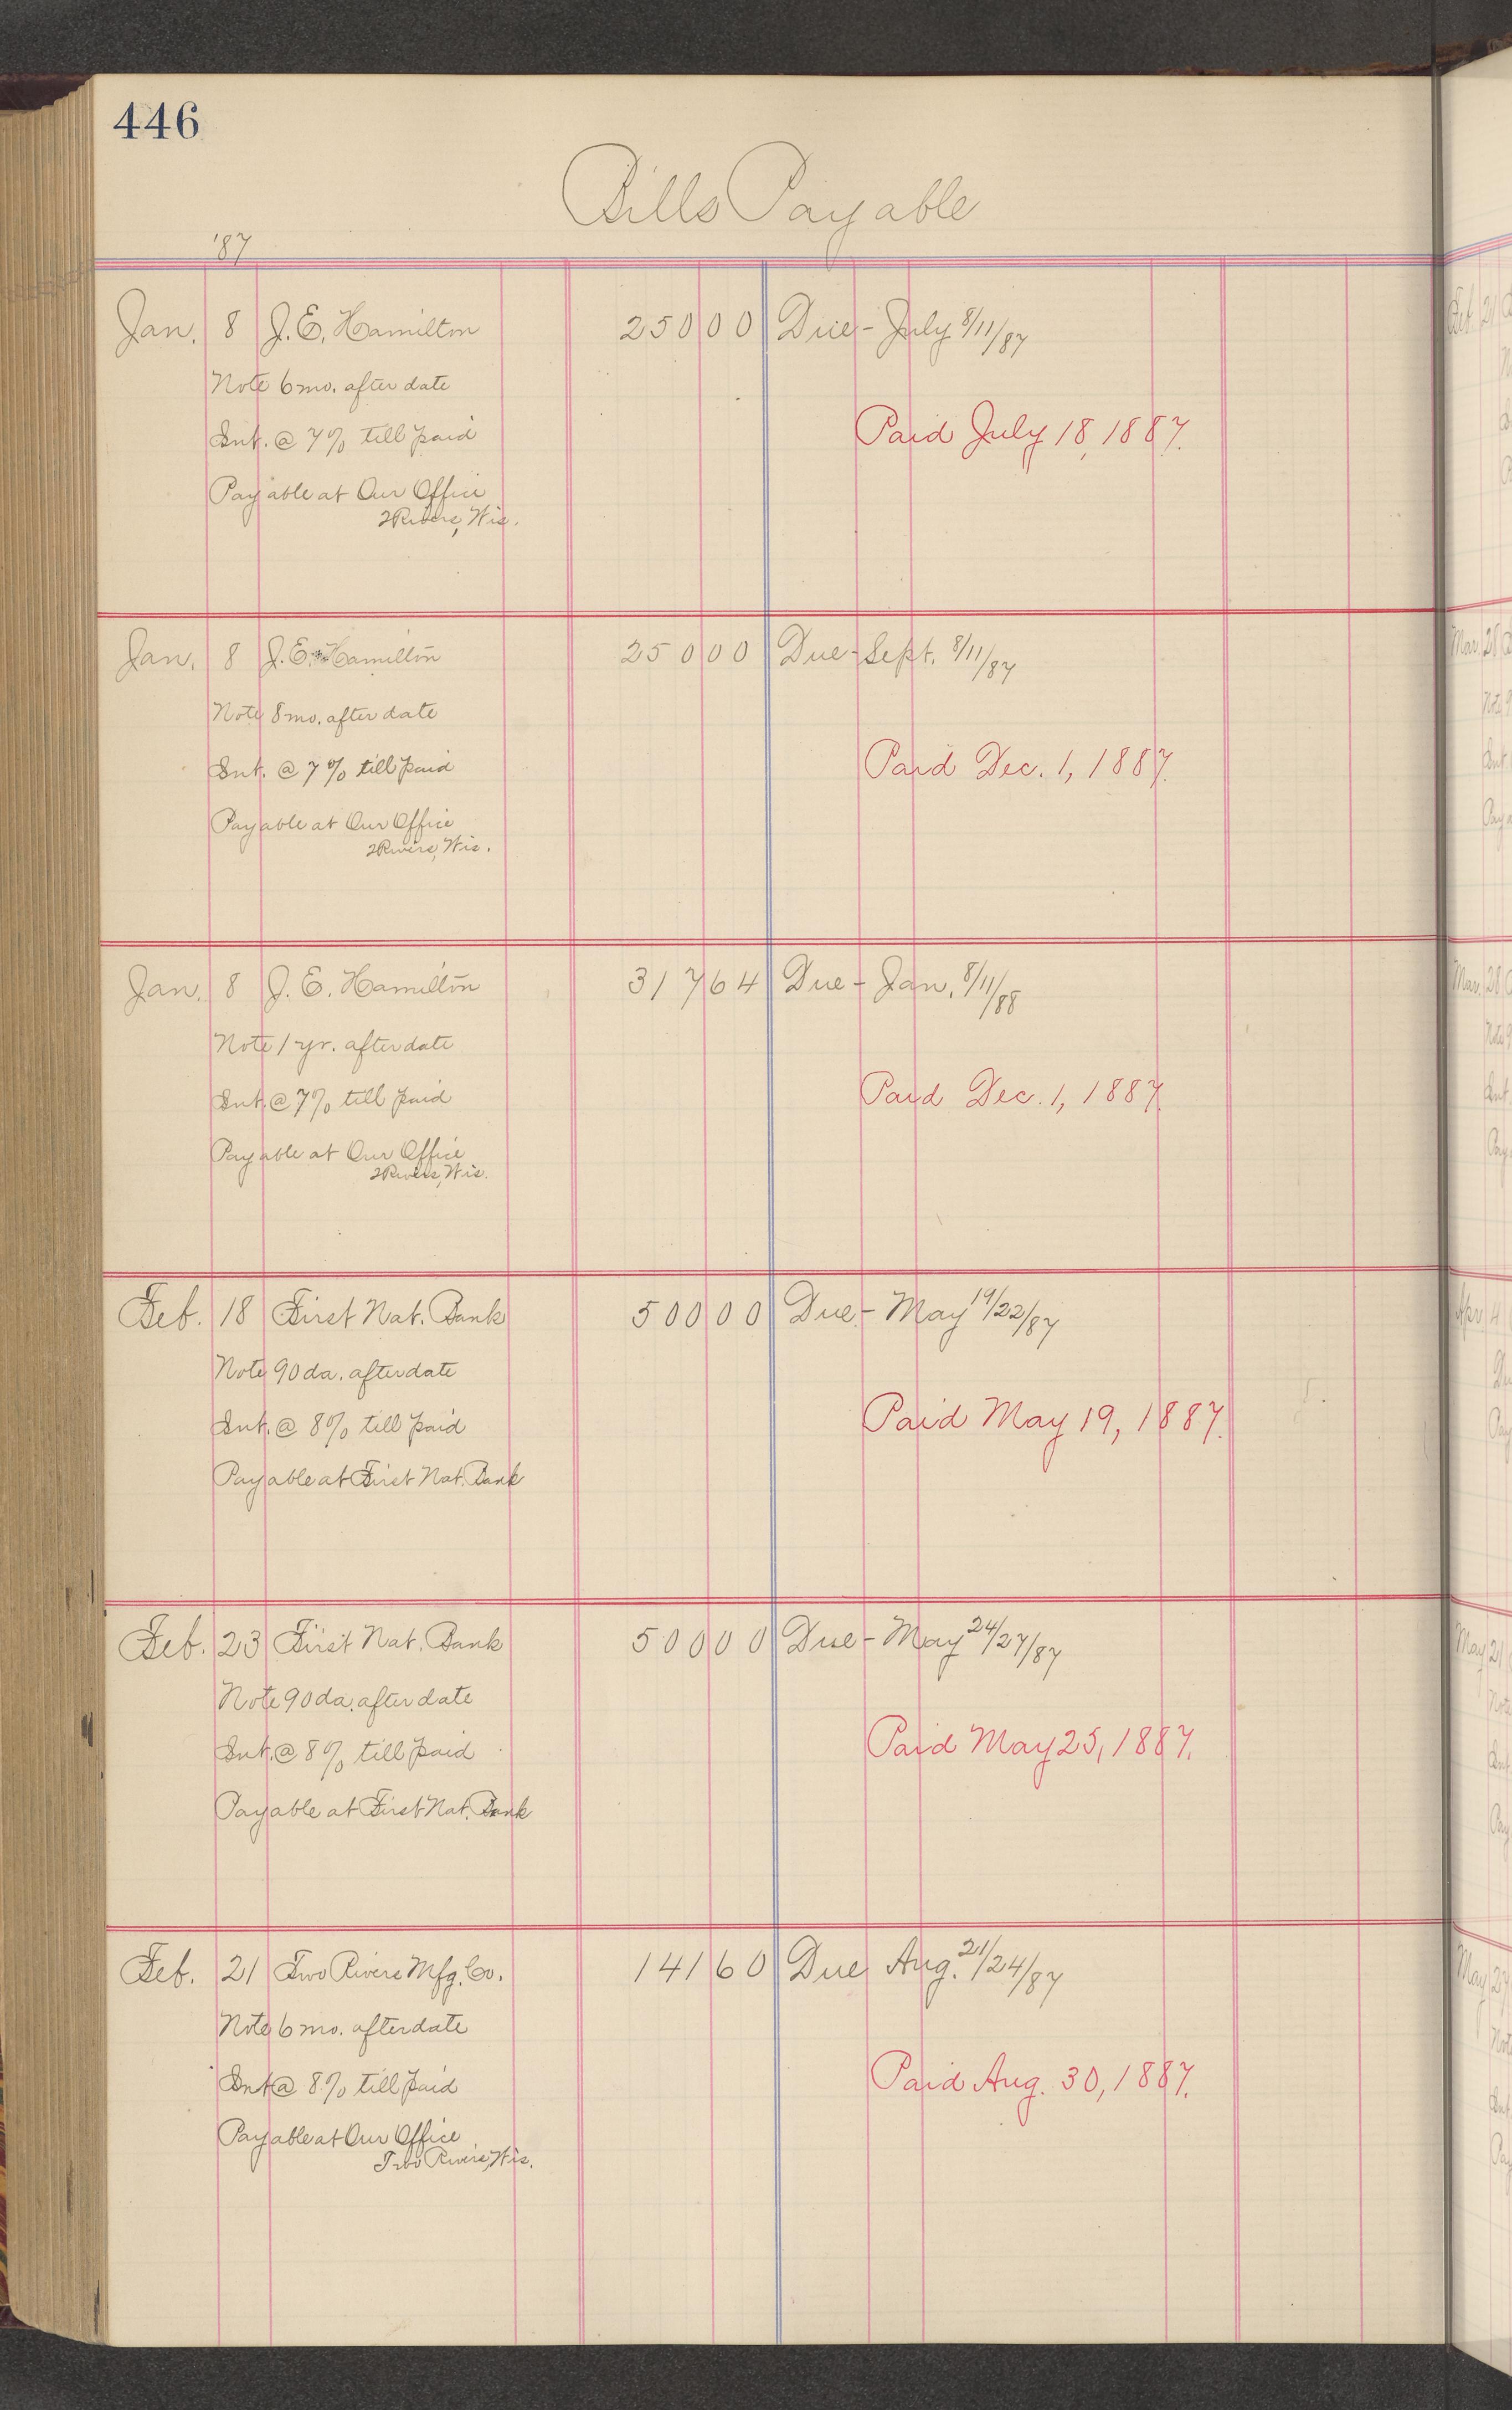 446
Bills Payable
'87
Jan. 8 J. E. Hamilton 250 00 Due - July 8/11/87
Note 6 mo. after date
Int. @ 7% till paid
Paid July 18, 1887.
Payable at Our Office
2Rivers, Wis.
Jan. 8 J. E. Hamilton 250 00 Due - Sept. 8/11/87
Note 8 mo. after date
Int. @ 7% till paid
Paid Dec. 1, 1887.
Payable at Our Office
2Rivers, Wis.
Jan. 8 J. E. Hamilton 317 64 Due - Jan. 8/11/88
Note 1 yr. after date
Int. @ 7% till paid
Paid Dec. 1, 1887
Payable at Our Office
2Rivers, Wis.
Feb. 18 First Nat. Bank 500 00 Due - May 19/22/87
Note 90 da. after date
Int. @ 8% till paid
Paid May 19, 1887.
Payable at First Nat. Bank
Feb. 23 First Nat. Bank 500 00 Due - May 24/27/87
Note 90 da. after date
Int. @ 8% till paid
Paid May 25, 1887.
Payable at First Nat. Bank
Feb. 21 Two Rivers Mfg. Co. 141 60 Due Aug. 21/24/87
Note 6 mo. after date
Int @ 8% till paid
Paid Aug. 30, 1887.
Payable at Our Office
Two Rivers, Wis.